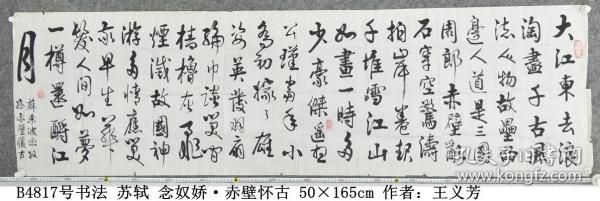 大江東去浪
淘盡千古風
流人物故壘西
邊人道是三國
周郎赤壁亂
石穿空驚濤
拍岸卷起
千堆雪江山
如畫一時多
少豪傑遥想
公瑾當年小
喬初嫁了雄
姿英發羽扇
綸巾談笑間
樯櫓灰飛
煙滅故國神
游多情應笑
我早生華
髮人間如夢
一樽還酹江
月
蘇東坡念奴
嬌赤壁懷古
B4817号书法 苏轼 念奴娇·赤壁怀古 50×165cm 作者: 王义芳
孔夫子旧书网